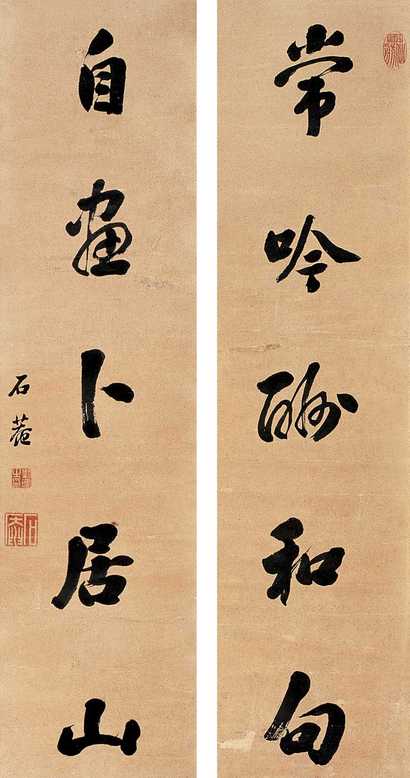 常吟酬和句
自画卜居山
石菴